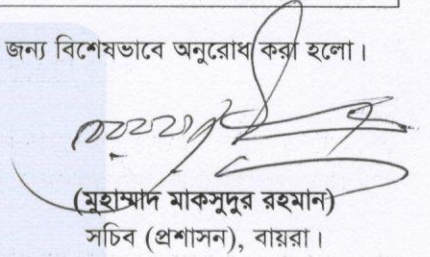 জন্য বিশেষভাবে অনুরোধ করা হলো।
(মুহাম্মাদ মাকসুদুর রহমান)
সচিব (প্রশাসন), বায়রা।